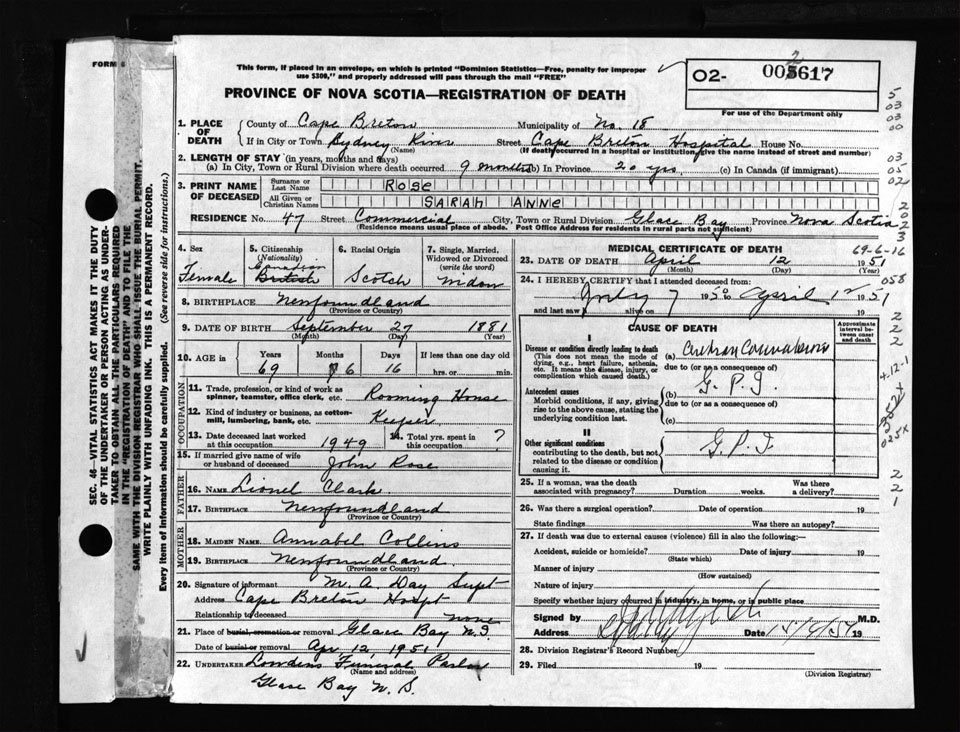 FORM 6
This form, if placed in an envelope, on which is printed "Dominion Statistics—Free, penalty for improper
use $300," and properly addressed will pass through the mail "FREE"
PROVINCE OF NOVA SCOTIA—REGISTRATION OF DEATH
O2- 005617
2
For use of the Department only
1. PLACE OF DEATH
County of Cape Breton Municipality of No. 18
If in City or Town Sydney River (Name) Street Cape Breton Hospital House No.
(If death occurred in a hospital or institution, give the name instead of street and number)
2. LENGTH OF STAY (in years, months and days)
(a) In City, Town or Rural Division where death occurred 9 months (b) In Province 20 yrs. (c) In Canada (if immigrant)
3. PRINT NAME OF DECEASED
Surname or Last Name ROSE
All Given or Christian Names SARAH ANNE
RESIDENCE No. 47 Street Commercial City, Town or Rural Division Glace Bay Province Nova Scotia
(Residence means usual place of abode. Post Office Address for residents in rural parts not sufficient)
4. Sex Female
5. Citizenship (Nationality) Canadian British
6. Racial Origin Scotch
7. Single, Married, Widowed or Divorced (write the word) Widow
8. BIRTHPLACE Newfoundland
(Province or Country)
9. DATE OF BIRTH September 27 1881
(Month) (Day) (Year)
10. AGE in Years 69 Months 6 Days 16 If less than one day old hrs. or min.
OCCUPATION
11. Trade, profession, or kind of work as spinner, teamster, office clerk, etc. Rooming House
12. Kind of industry or business, as cotton-mill, lumbering, bank, etc. Keeper
13. Date deceased last worked at this occupation 1949 14. Total yrs. spent in this occupation ?
15. If married give name of wife or husband of deceased John Rose
FATHER
16. NAME Lionel Clark
17. BIRTHPLACE Newfoundland
(Province or Country)
MOTHER
18. MAIDEN NAME Annabel Collins
19. BIRTHPLACE Newfoundland.
(Province or Country)
20. Signature of informant M. A Day Supt
Address Cape Breton Hospt
Relationship to deceased none
21. Place of burial, cremation or removal Glace Bay N.S.
Date of burial or removal Apr, 12, 1951
22. UNDERTAKER Lowdens Funeral Parlor
(Name and address)
Glace Bay N. S.
MEDICAL CERTIFICATE OF DEATH
69-6-16
23. DATE OF DEATH April 12 1951
(Month) (Day) (Year)
24. I HEREBY CERTIFY that I attended deceased from:
July 7 1950 to April 12 1951
and last saw alive on 19
CAUSE OF DEATH
Approximate interval between onset and death
I
Disease or condition directly leading to death
(This does not mean the mode of dying, e.g., heart failure, asthenia, etc. It means the disease, injury, or complication which caused death.)
(a)
due to (or as a consequence of)
Antecedent causes
Morbid conditions, if any, giving rise to the above cause, stating the underlying condition last.
(b) G. P. I.
due to (or as a consequence of)
(c)
II
Other significant conditions contributing to the death, but not related to the disease or condition causing it.
G. P. I
25. If a woman, was the death associated with pregnancy? Duration weeks. Was there a delivery?
26. Was there a surgical operation? Date of operation 19
State findings Was there an autopsy?
27. If death was due to external causes (violence) fill in also the following:—
Accident, suicide or homicide? Date of injury 19
(State which)
Manner of injury
(How sustained)
Nature of injury
Specify whether injury occurred in industry, in home, or in public place
Signed by M.D.
Address Date 19
28. Division Registrar's Record Number
29. Filed 19
(Division Registrar)
SEC. 46—VITAL STATISTICS ACT MAKES IT THE DUTY
OF THE UNDERTAKER OR PERSON ACTING AS UNDER-
TAKER TO OBTAIN ALL THE PARTICULARS REQUIRED
IN THE "REGISTRATION OF DEATH" AND TO FILE THE
SAME WITH THE DIVISION REGISTRAR WHO SHALL ISSUE THE BURIAL PERMIT.
WRITE PLAINLY WITH UNFADING INK. THIS IS A PERMANENT RECORD.
Every item of Information should be carefully supplied. (See reverse side for instructions.)
5
03
03
00
03
5
05
02
058
4.12.1
025X
2
2
1